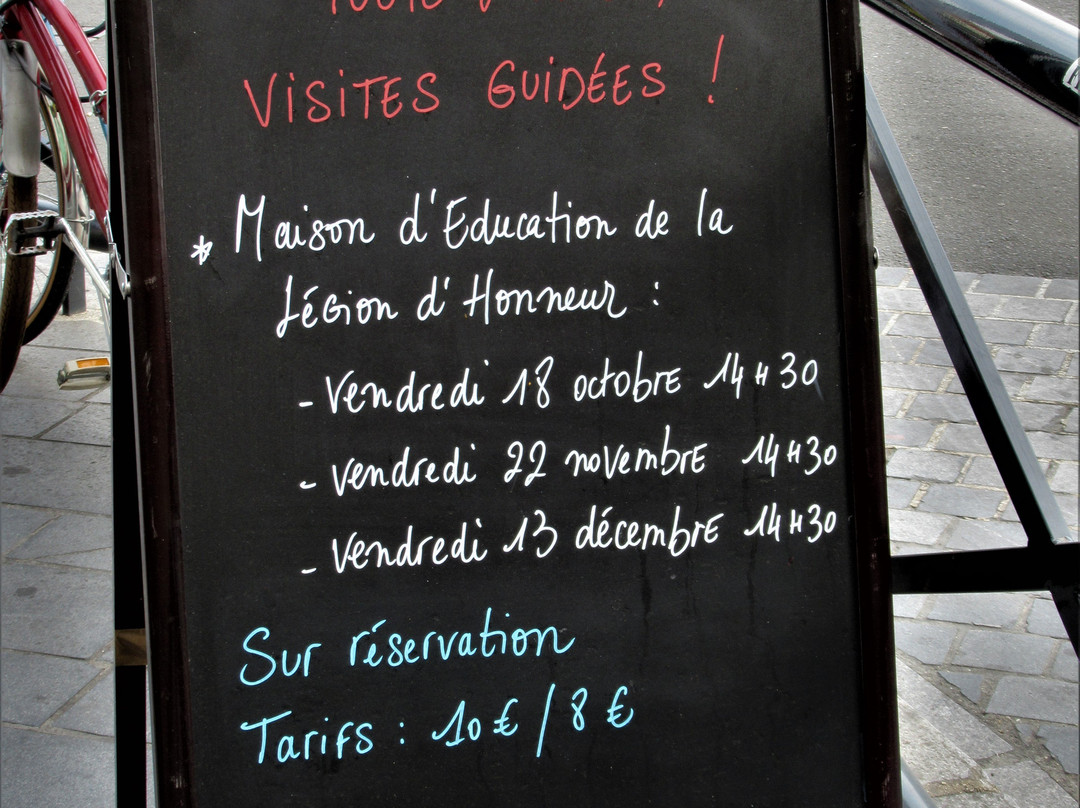 VISITES GUIDÉES !
* Maison d'Education de la
Légion d'Honneur :
- Vendredi 18 octobre 14H30
- vendredi 22 novembre 14H30
- vendredi 13 décembre 14H30
Sur réservation
Tarifs : 10€ / 8€